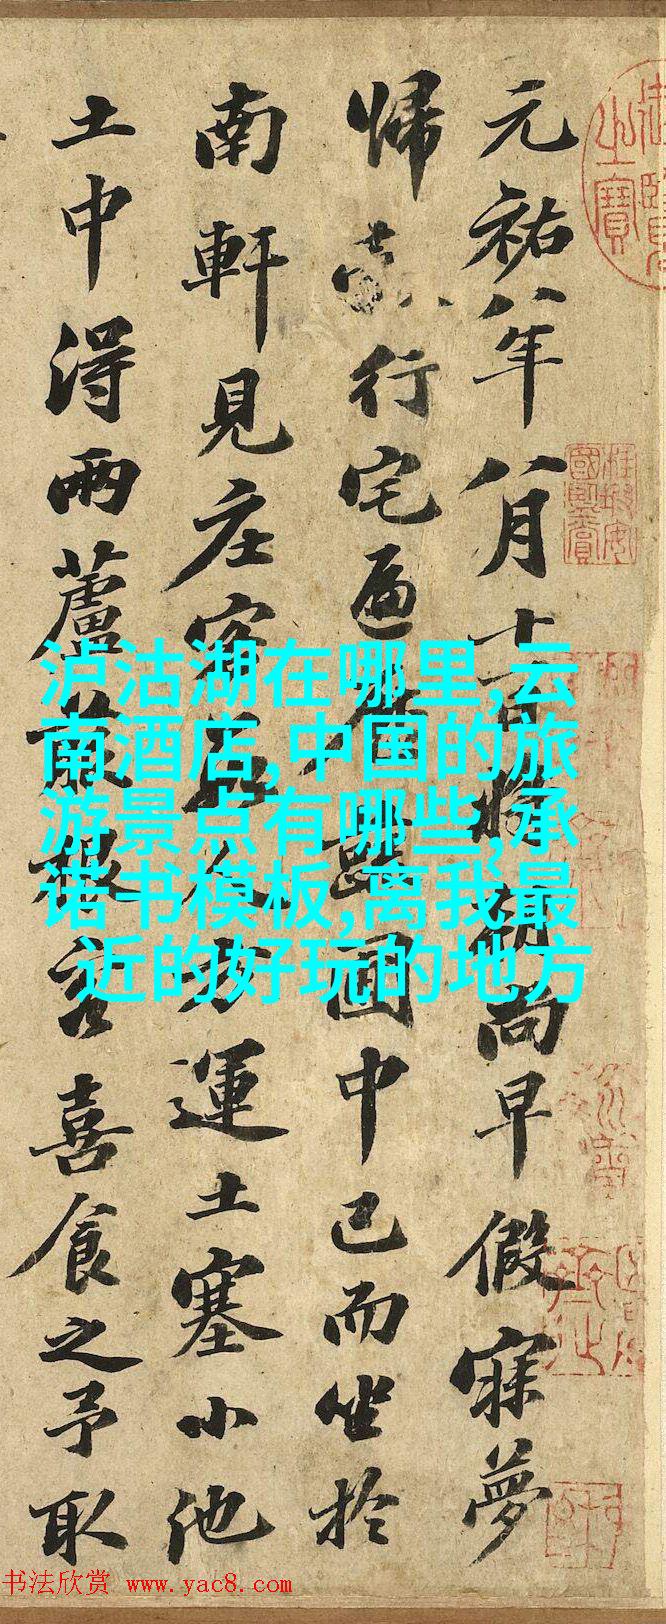 元祐八年八月十一日將朝尚早假寐夢
歸 行宅遍 蔬圃中已而坐於
南軒見庄客 人方運土塞小池
土中得兩蘆菔根客喜食之予取
泸沽湖在哪里,云
南酒店,中国的旅
游景点有哪些,承
诺书模板,离我最
近的好玩的地方
书法欣赏 www.yac8.com